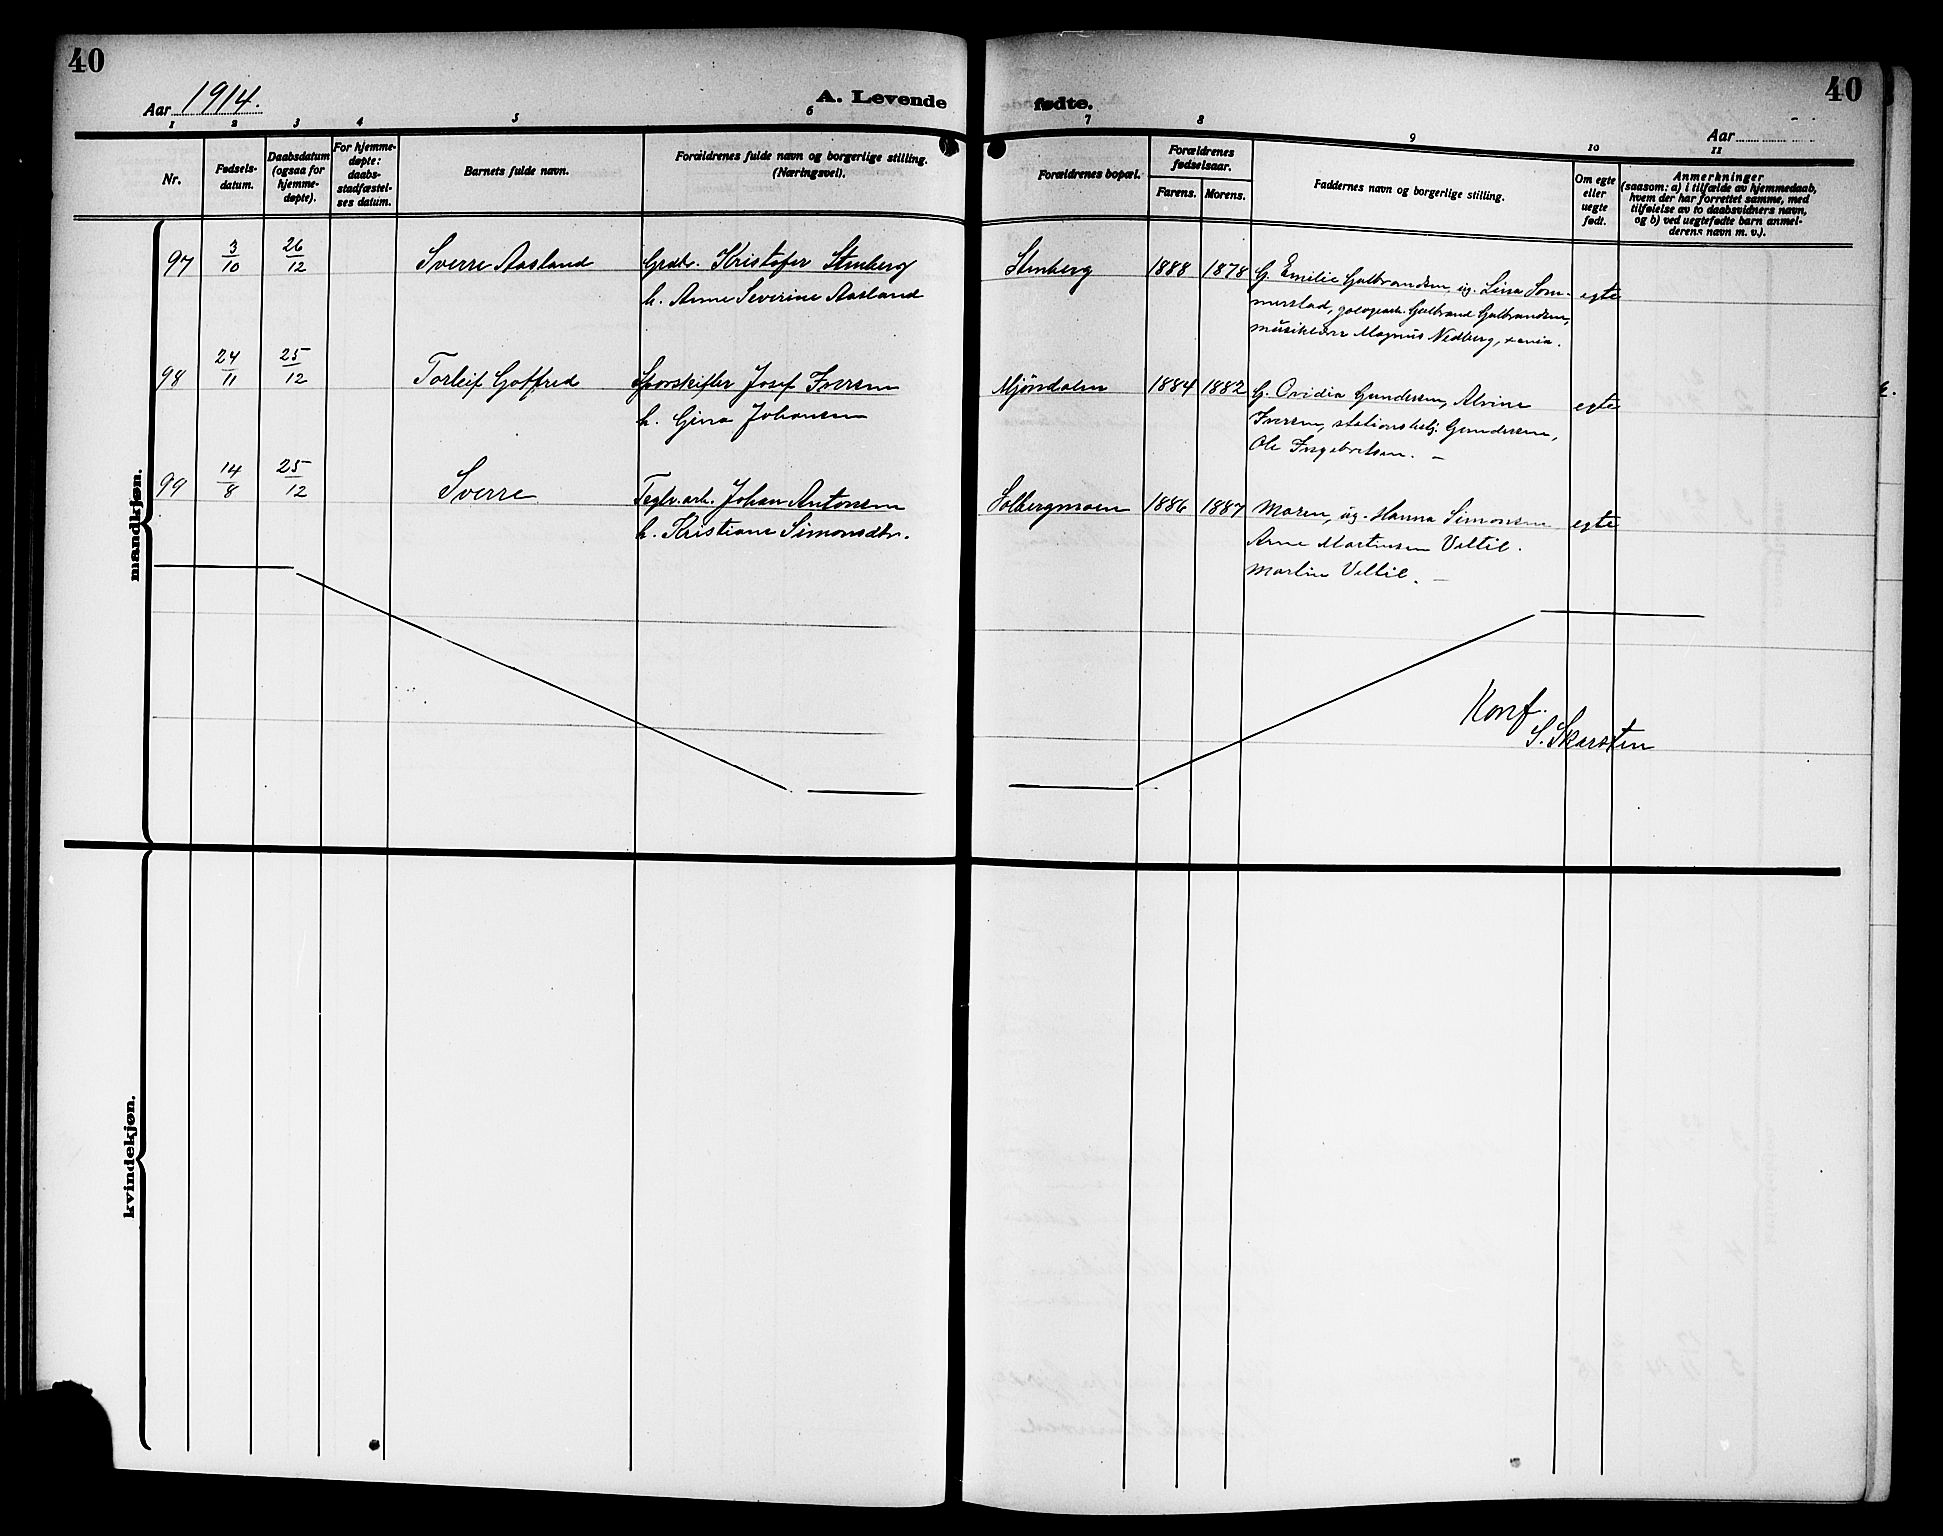 40
40
Aar 1914.
A. Levende
fødte.
Aar
1 2 3 4 5 6 7 8 9 10 11
Nr.
Fødsels-
datum.
Daabsdatum
(ogsaa for
hjemme-
døpte).
For hjemme-
døpte:
daabs-
stadfæstel-
ses datum.
Barnets fulde navn.
Forældrenes fulde navn og borgerlige stilling.
(Næringsvei).
Forældrenes bopæl.
Forældrenes
fødselsaar.
Farens. Morens.
Faddernes navn og borgerlige stilling.
Om egte
eller
uegte
født.
Anmerkninger
(saasom: a) i tilfælde av hjemmedaab,
hvem der har forrettet samme, med
tilføielse av to daabsvidners navn,
og b) ved uegtefødte barn anmel-
derens navn m. v.).
mandkjøn.
97 3/10 26/12 Sverre Aasland Grdbr. Kristofer Stenberg Stenberg 1888 1878 G. Emilie Gulbrandsen, ug. Lina Som- egte
h. Anne Severine Aasland
merstad, Gulbrand Gulbrandsen,
musiklærer Magnus Nedberg, xania.
98 24/11 25/12 Torleif Gotfred Sporskifter Josef Iversen Mjøndalen 1884 1882 G. Ovidia Gundersen, Alvine egte
h. Gina Johansen
Iversen, stationsbetj. Gundersen,
Ole Ingebretsen. —
99 14/8 25/12 Sverre Teglv.arb. Johan Antonsen Solbergmoen 1886 1887 Moren, ug. Hanna Simonsen egte
h. Kristiane Simonsdtr.
Arne Martinsen Veltil.
Martin Veltil. —
Konf.
S. Skarsten
kvindekjøn.